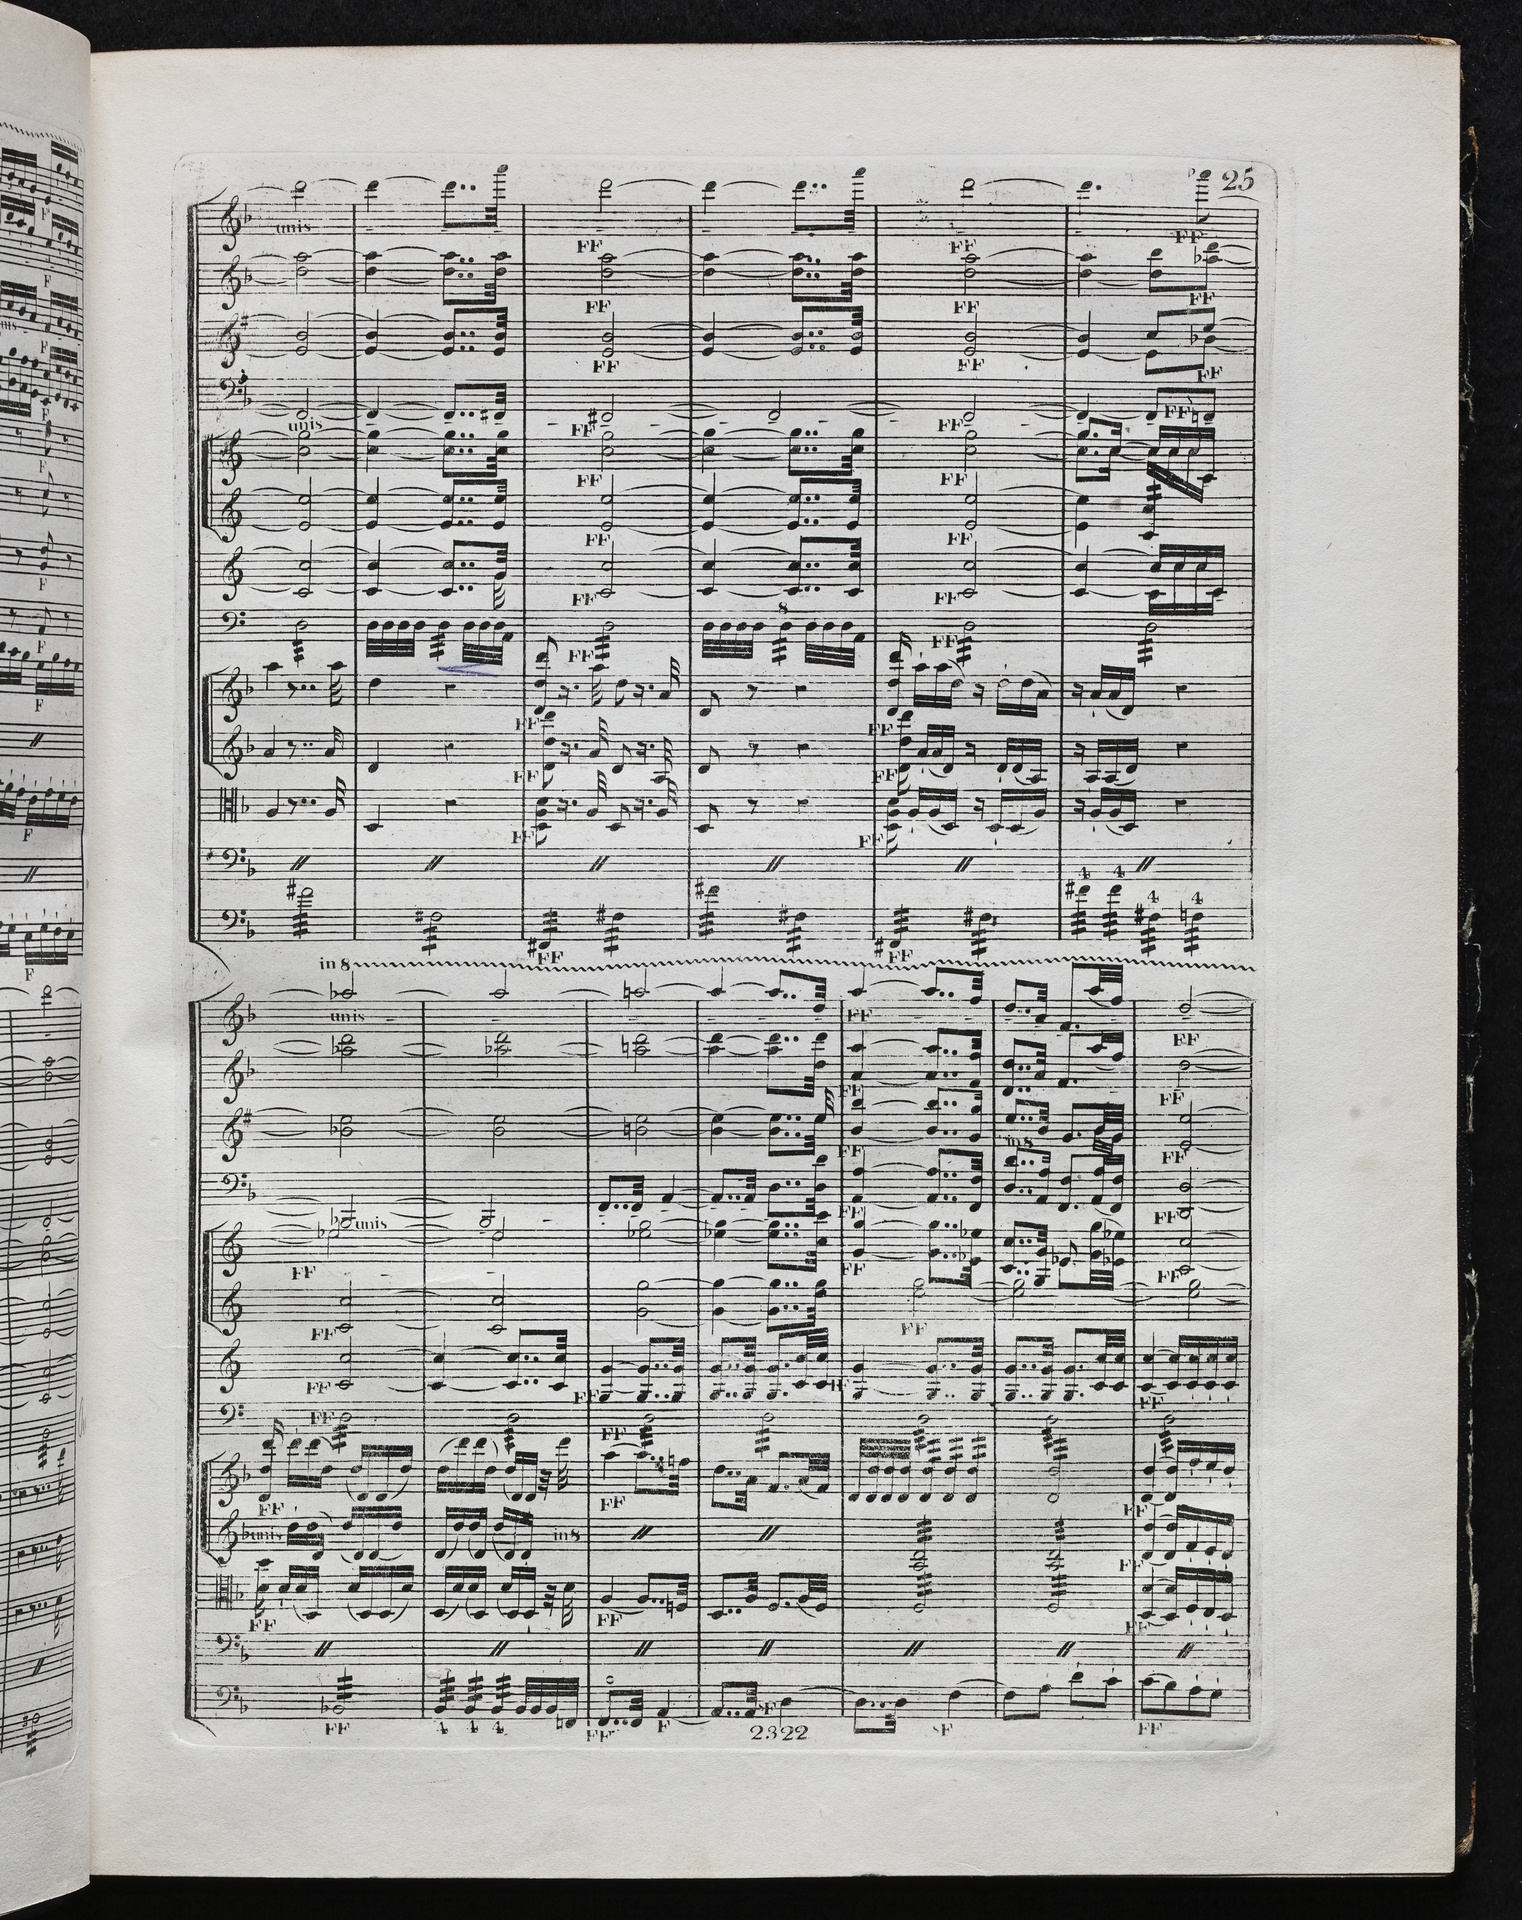 25
unis
FF
FF FF
FF
FF FF
FF
FF
unis
FF FF
FF
FF FF
FF FF
FF FF
8
FF FF
FF FF
FF FF
FF FF
4 4
4 4
FF FF
in 8
unis FF
FF
FF
FF
in 8
FF
FF
FF
unis
FF
FF FF
FF FF
FF
FF FF FF
FF
FF FF
FF FF FF
unis in 8
FF
FF FF FF
FF 4 4 4 FF F SF SF FF
2322